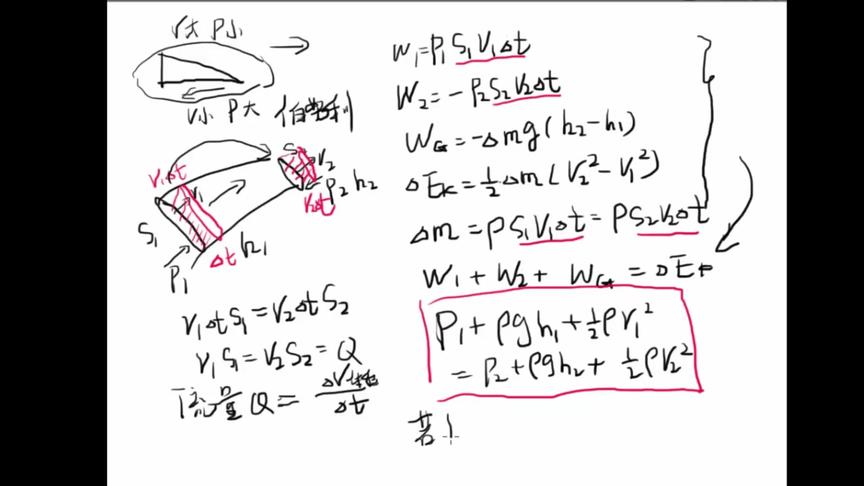 v大 P小
v小 P大 伯努利
v₁Δt
v₁
S₁
P₁
Δt h₁
S₂
v₂
P₂ h₂
v₂Δt
v₁Δt S₁ = v₂Δt S₂
v₁S₁ = v₂S₂ = Q
流量 Q = ΔV体积/Δt
W₁ = P₁S₁V₁Δt
W₂ = -P₂S₂V₂Δt
W_G = -Δmg(h₂-h₁)
ΔE_k = ½Δm(V₂²-V₁²)
Δm = ρS₁V₁Δt = ρS₂V₂Δt
W₁ + W₂ + W_G = ΔE_k
P₁ + ρgh₁ + ½ρv₁²
= P₂ + ρgh₂ + ½ρv₂²
若